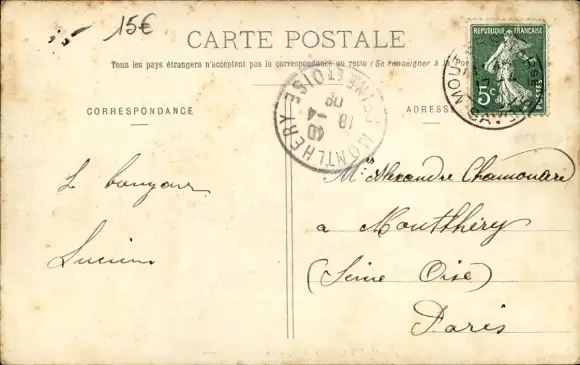 15€
CARTE POSTALE
Tous les pays étrangers n'acceptent pas la correspondance au recto (Se renseigner à la Poste
CORRESPONDANCE
ADRESSE
REPUBLIQUE FRANÇAISE
5c
POSTES
MONTLHERY
SEINE ET OISE
18 -4
09
Le bonjour
Lucien
Mr Alexandre Chamoulère
a Montlhéry
(Seine Oise)
Paris